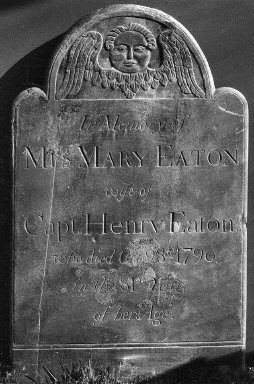 In Memory of
Mrs MARY EATON
wife of
Capt. Henry Eaton
who died 1790,
in the Year
of her Age.